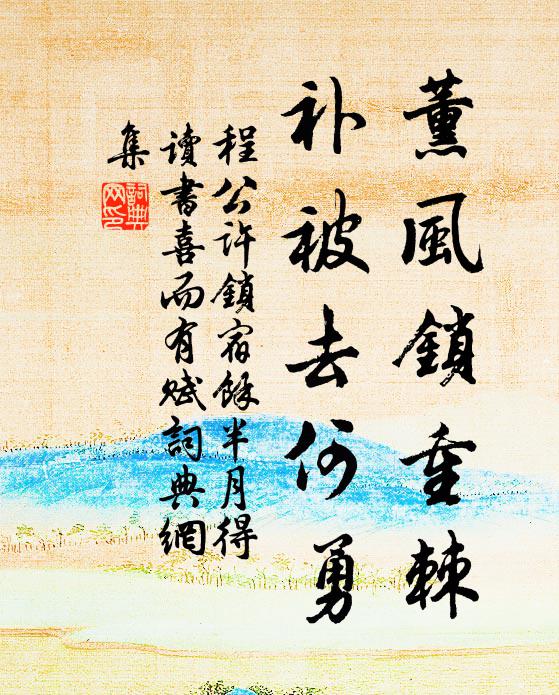 薰風鎖重棘
补被去何勇
程公许鎖宿餘半月得
讀書喜而有赋詞典網
集
詞典網印